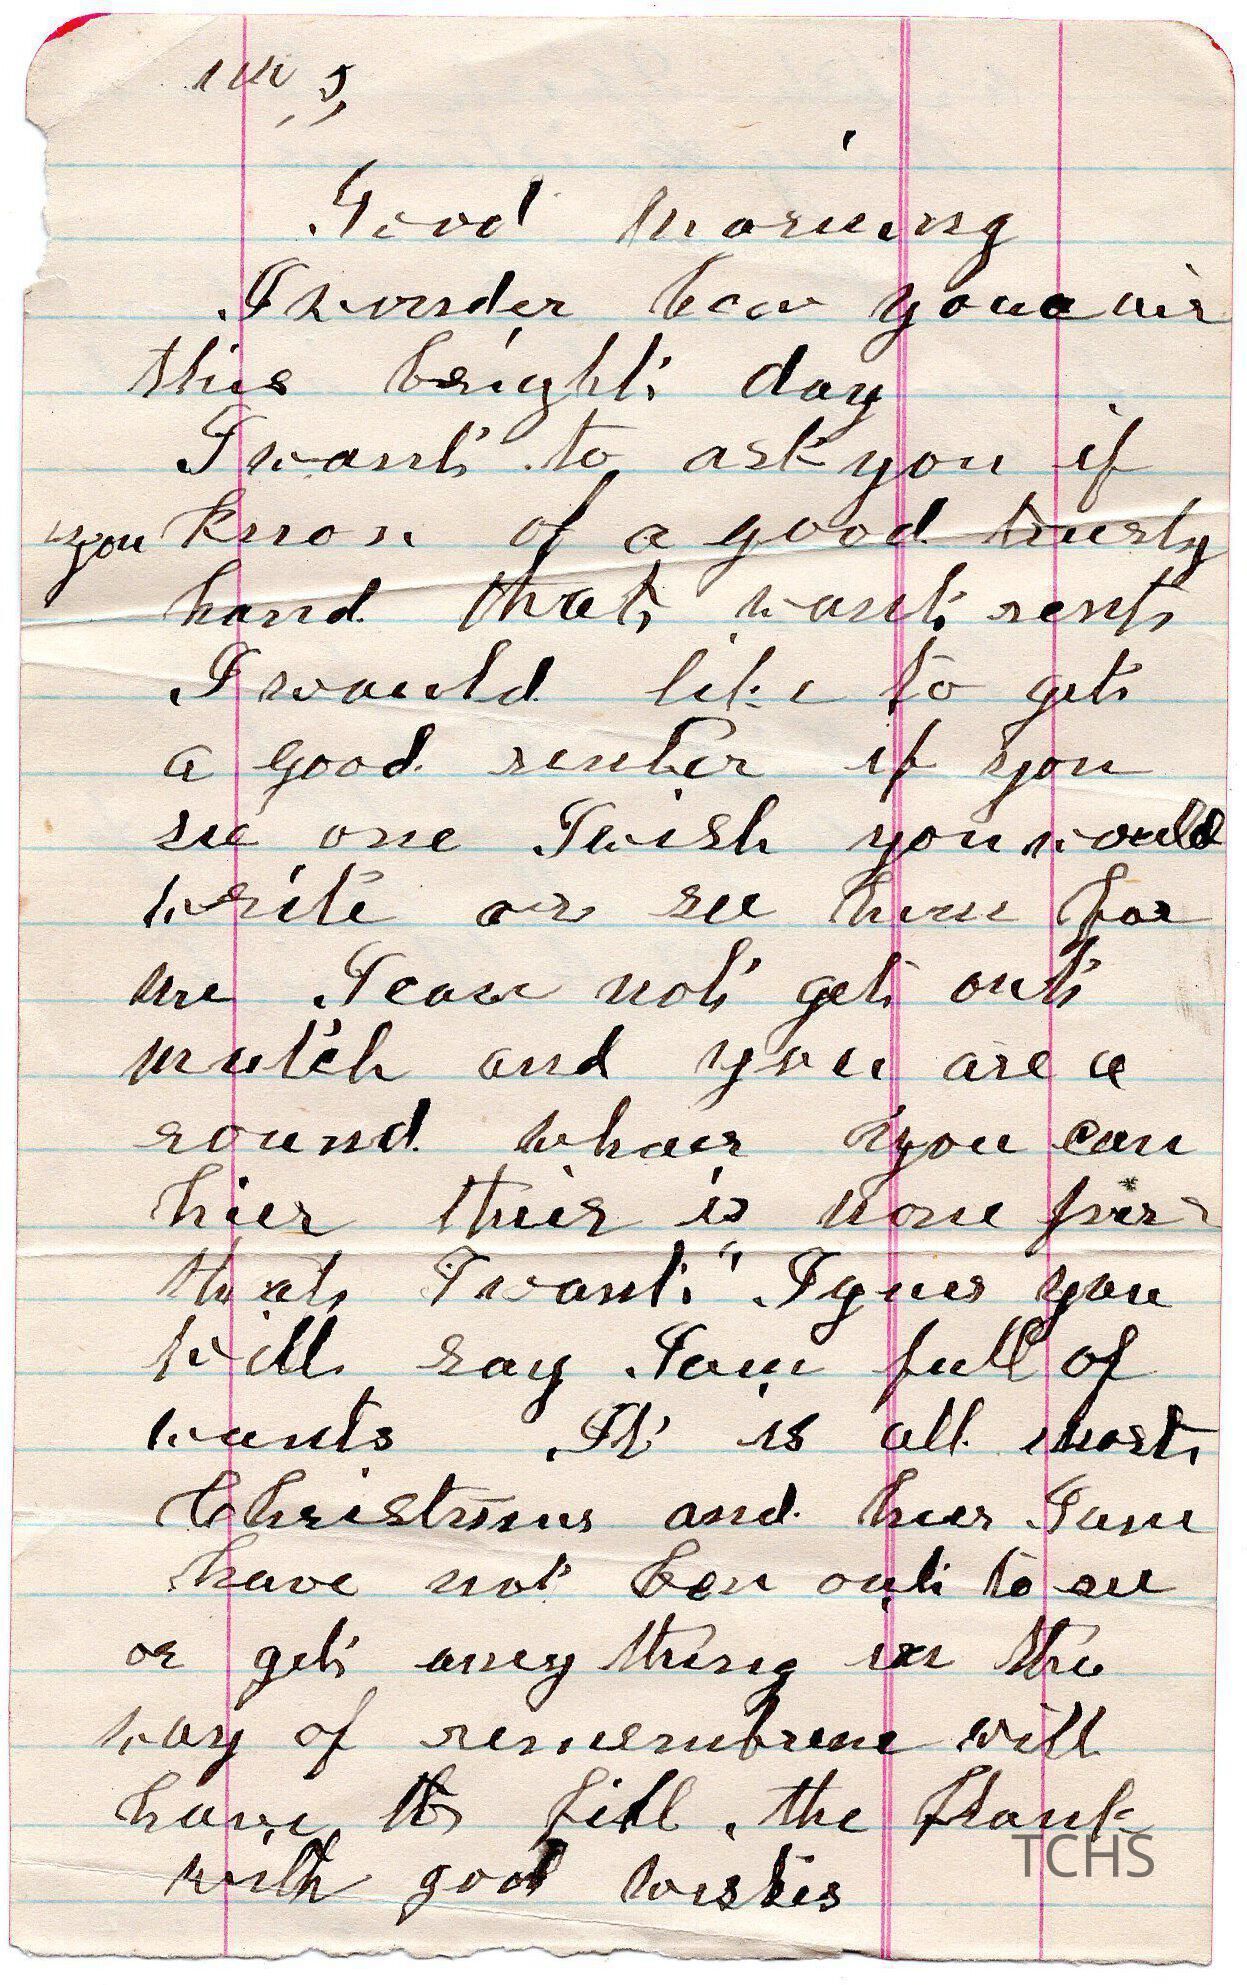 Good morning
I wonder how you air
this bright day
I want to ask you if
you know of a good trusty
hand that want rent
I would like to get
a good renter if you
see one I wish you would
write or see them for
me I can not get out
mutch and you are a
round whair you can
hier thier is none hier
that I want I gues you
will say I am full of
wants It is all most
Christmus and hier I am
have not ben out to see
or get any thing in the
way of remembrene will
have to fill the blank
with good wishis
TCHS